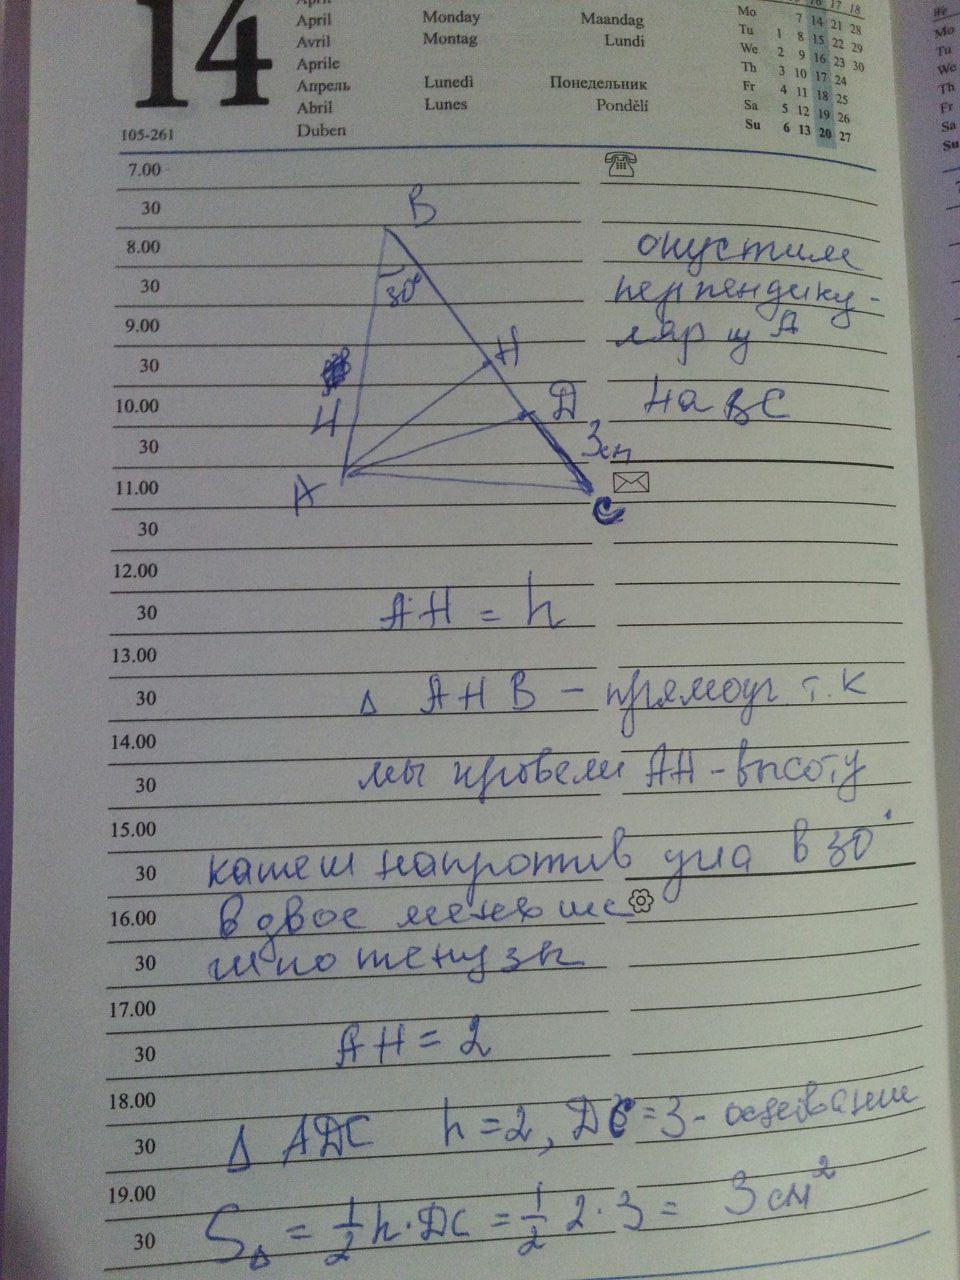 14
April
April
Avril
Aprile
Апрель
Abril
Duben
Monday
Montag
Lunedì
Lunes
Maandag
Lundi
Понедельник
Pondělí
16 17 18
Mo 7 14 21 28
Tu 1 8 15 22 29
We 2 9 16 23 30
Th 3 10 17 24
Fr 4 11 18 25
Sa 5 12 19 26
Su 6 13 20 27
We
Mo
Tu
We
Th
Fr
Sa
Su
105-261
7.00
30
B
8.00
опустим
30
30°
перпендику-
9.00
ляр из А
30
H
10.00
Д
на ВС
4
30
3см
11.00
A
C
30
12.00
30
AH = h
13.00
30
Δ AHB – прямоуг. т.к
14.00
30
мы провели AH – высоту
15.00
30
катет напротив угла в 30°
16.00
вдвое меньше
30
гипотенузы
17.00
30
AH = 2
18.00
30
Δ АДС h = 2, ДС = 3 - основание
19.00
30
S Δ = 1/2 h · ДС = 1/2 2 · 3 = 3 см²